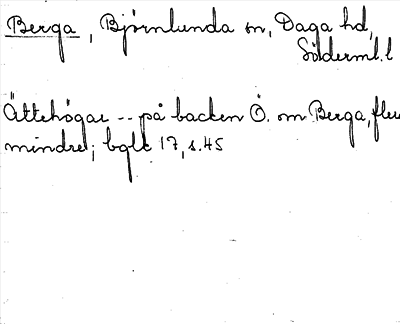 Berga, Björnlunda sn, Daga hd,
Söderml. l
Ättehögar -- på backen Ö. om Berga, flera
mindre; bglt 17, s. 45